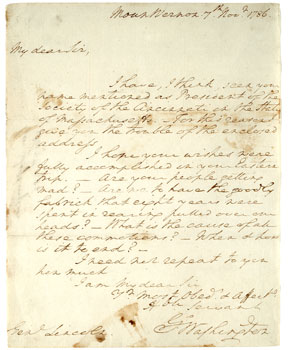 Mount Vernon 7th Novr 1786.
My dear Sir,
I have, I think, seen your
name mentioned as President of the
Society of the Cincinnati in the State
of Massachusetts. For this reason I
give you the trouble of the enclosed
address.
I hope your wishes were
fully accomplished in your Eastern
trip. Are your people getting
mad? Are we to have the goodly
fabrick that eight years were
spent in rearing pulled over our
heads? What is the cause of all
these commotions? When & how
is it to end?
I need not repeat to you
how much
I am My dear Sir
Yr most Obedt & Affecte
Servant
Go Washington
Genl Lincoln